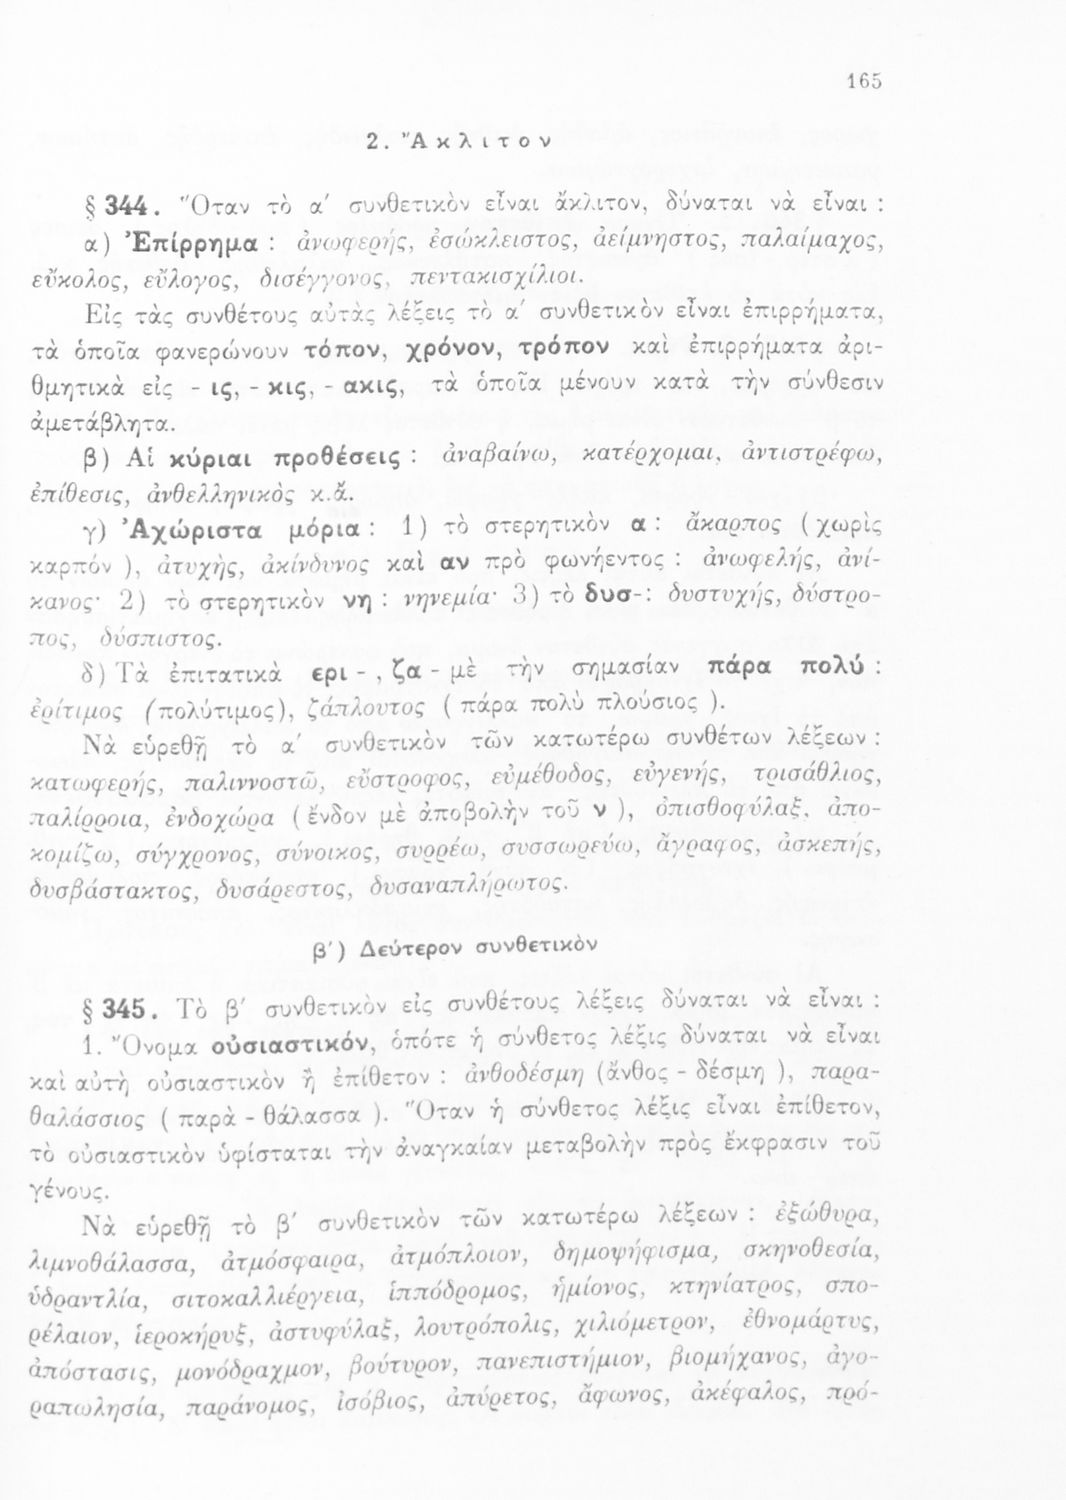 165
2. Ἄκλιτον
§ 344. Ὅταν τὸ α′ συνθετικὸν εἶναι ἄκλιτον, δύναται νὰ εἶναι :
α) Ἐπίρρημα : ἀνωφερής, ἐσώκλειστος, ἀείμνηστος, παλαίμαχος,
εὔκολος, εὔλογος, δισέγγονος, πεντακισχίλιοι.
Εἰς τὰς συνθέτους αὐτὰς λέξεις τὸ α′ συνθετικὸν εἶναι ἐπιρρήματα,
τὰ ὁποῖα φανερώνουν τόπον, χρόνον, τρόπον καὶ ἐπιρρήματα ἀρι-
θμητικὰ εἰς - ις, - κις, - ακις, τὰ ὁποῖα μένουν κατὰ τὴν σύνθεσιν
ἀμετάβλητα.
β) Αἱ κύριαι προθέσεις : ἀναβαίνω, κατέρχομαι, ἀντιστρέφω,
ἐπίθεσις, ἀνθελληνικὸς κ.ἄ.
γ) Ἀχώριστα μόρια : 1) τὸ στερητικὸν α : ἄκαρπος (χωρὶς
καρπόν ), ἀτυχής, ἀκίνδυνος καὶ αν πρὸ φωνήεντος : ἀνωφελής, ἀνί-
κανος· 2) τὸ στερητικὸν νη : νηνεμία· 3) τὸ δυσ-: δυστυχής, δύστρο-
πος, δύσπιστος.
δ) Τὰ ἐπιτατικὰ ερι - , ζα - μὲ τὴν σημασίαν πάρα πολύ :
ἐρίτιμος (πολύτιμος), ζάπλουτος ( πάρα πολὺ πλούσιος ).
Νὰ εὑρεθῇ τὸ α′ συνθετικὸν τῶν κατωτέρω συνθέτων λέξεων :
κατωφερής, παλιννοστῶ, εὔστροφος, εὐμέθοδος, εὐγενής, τρισάθλιος,
παλίρροια, ἐνδοχώρα ( ἔνδον μὲ ἀποβολὴν τοῦ ν ), ὀπισθοφύλαξ, ἀπο-
κομίζω, σύγχρονος, σύνοικος, συρρέω, συσσωρεύω, ἄγραφος, ἀσκεπής,
δυσβάστακτος, δυσάρεστος, δυσαναπλήρωτος.
β′) Δεύτερον συνθετικὸν
§ 345. Τὸ β′ συνθετικὸν εἰς συνθέτους λέξεις δύναται νὰ εἶναι :
1. Ὄνομα οὐσιαστικόν, ὁπότε ἡ σύνθετος λέξις δύναται νὰ εἶναι
καὶ αὐτὴ οὐσιαστικὸν ἢ ἐπίθετον : ἀνθοδέσμη (ἄνθος - δέσμη ), παρα-
θαλάσσιος ( παρὰ - θάλασσα ). Ὅταν ἡ σύνθετος λέξις εἶναι ἐπίθετον,
τὸ οὐσιαστικὸν ὑφίσταται τὴν ἀναγκαίαν μεταβολὴν πρὸς ἔκφρασιν τοῦ
γένους.
Νὰ εὑρεθῇ τὸ β′ συνθετικὸν τῶν κατωτέρω λέξεων : ἐξώθυρα,
λιμνοθάλασσα, ἀτμόσφαιρα, ἀτμόπλοιον, δημοψήφισμα, σκηνοθεσία,
ὑδραντλία, σιτοκαλλιέργεια, ἱππόδρομος, ἡμίονος, κτηνίατρος, σπο-
ρέλαιον, ἱεροκήρυξ, ἀστυφύλαξ, λουτρόπολις, χιλιόμετρον, ἐθνομάρτυς,
ἀπόστασις, μονόδραχμον, βούτυρον, πανεπιστήμιον, βιομήχανος, ἀγο-
ραπωλησία, παράνομος, ἰσόβιος, ἀπύρετος, ἄφωνος, ἀκέφαλος, πρό-